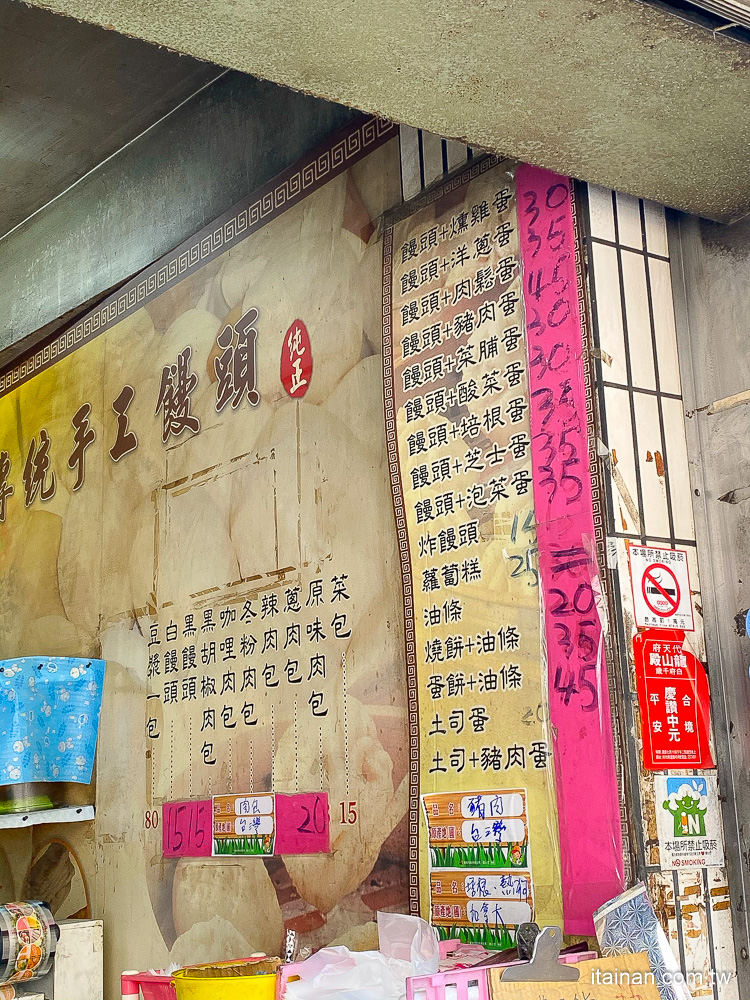 傳統手工饅頭
純正
豆漿一包
白饅頭
黑饅頭
黑胡椒肉包
咖哩肉包
冬粉肉包
辣肉包
蔥肉包
原味肉包
菜包
80
15
15
20
15
品名 肉包
原產地(國) 台灣
饅頭+燻雞蛋 30
饅頭+洋蔥蛋 35
饅頭+肉鬆蛋 45
饅頭+豬肉蛋 30
饅頭+菜脯蛋 30
饅頭+酸菜蛋 35
饅頭+培根蛋 35
饅頭+芝士蛋 35
饅頭+泡菜蛋
炸饅頭 15
蘿蔔糕 25
油條
燒餅+油條
蛋餅+油條
土司蛋 20
土司+豬肉蛋
20
35
45
品名 豬肉
原產地(國) 台灣
品名 培根、熱狗
原產地(國) 加拿大
本場所禁止吸菸
NO SMOKING
代天府
龍山殿
白府千歲
慶讚中元
合境
平安
IN
本場所禁止吸菸
NO SMOKING
itainan.com.tw